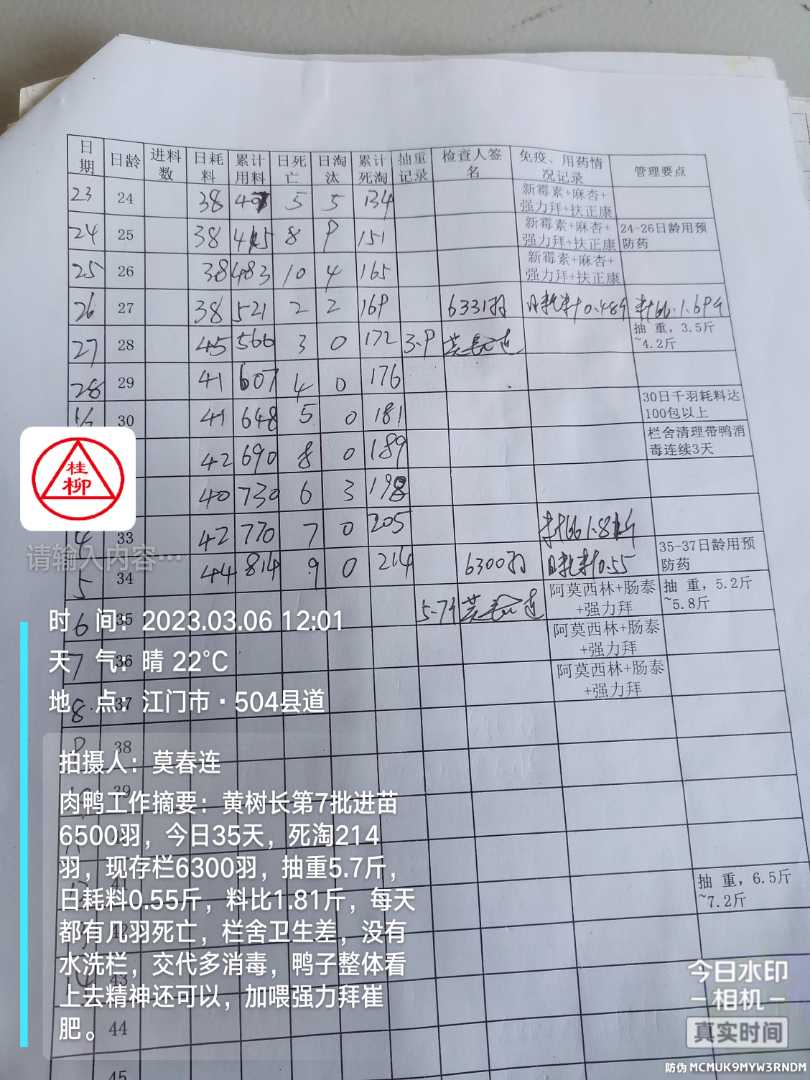 日期 日龄 进料数 日耗料 累计用料 日死亡 日淘汰 累计死淘 抽重记录 检查人签名 免疫、用药情况记录 管理要点
23 24 38 5 5 134 新霉素+麻杏+强力拜+扶正康
24 25 38 445 8 9 151 新霉素+麻杏+强力拜+扶正康 24-26日龄用预防药
25 26 38 483 10 4 165 新霉素+麻杏+强力拜+扶正康
26 27 38 521 2 2 169 6331羽 日耗料0.48斤 料比1.69斤
27 28 45 566 3 0 172 3.9 莫春连 抽重，3.5斤~4.2斤
28 29 41 607 4 0 176
30 41 648 5 0 181 30日千羽耗料达100包以上
42 690 8 0 189 栏舍清理带鸭消毒连续3天
40 730 6 3 198
4 33 42 770 7 0 205 料比1.81斤
5 34 44 814 9 0 214 6300羽 日耗料0.55 35-37日龄用预防药
6 35 5.7斤 莫春连 阿莫西林+肠泰+强力拜 抽重，5.2斤~5.8斤
7 36 阿莫西林+肠泰+强力拜
8 37 阿莫西林+肠泰+强力拜
38
39
41 抽重，6.5斤~7.2斤
42
43
44
45
桂柳
请输入内容…
时 间：2023.03.06 12:01
天 气：晴 22℃
地 点：江门市·504县道
拍摄人：莫春连
肉鸭工作摘要：黄树长第7批进苗
6500羽，今日35天，死淘214
羽，现存栏6300羽，抽重5.7斤，
日耗料0.55斤，料比1.81斤，每天
都有几羽死亡，栏舍卫生差，没有
水洗栏，交代多消毒，鸭子整体看
上去精神还可以，加喂强力拜崔
肥。
今日水印
相机
真实时间
防伪 MCMUK9MYW3RNDM